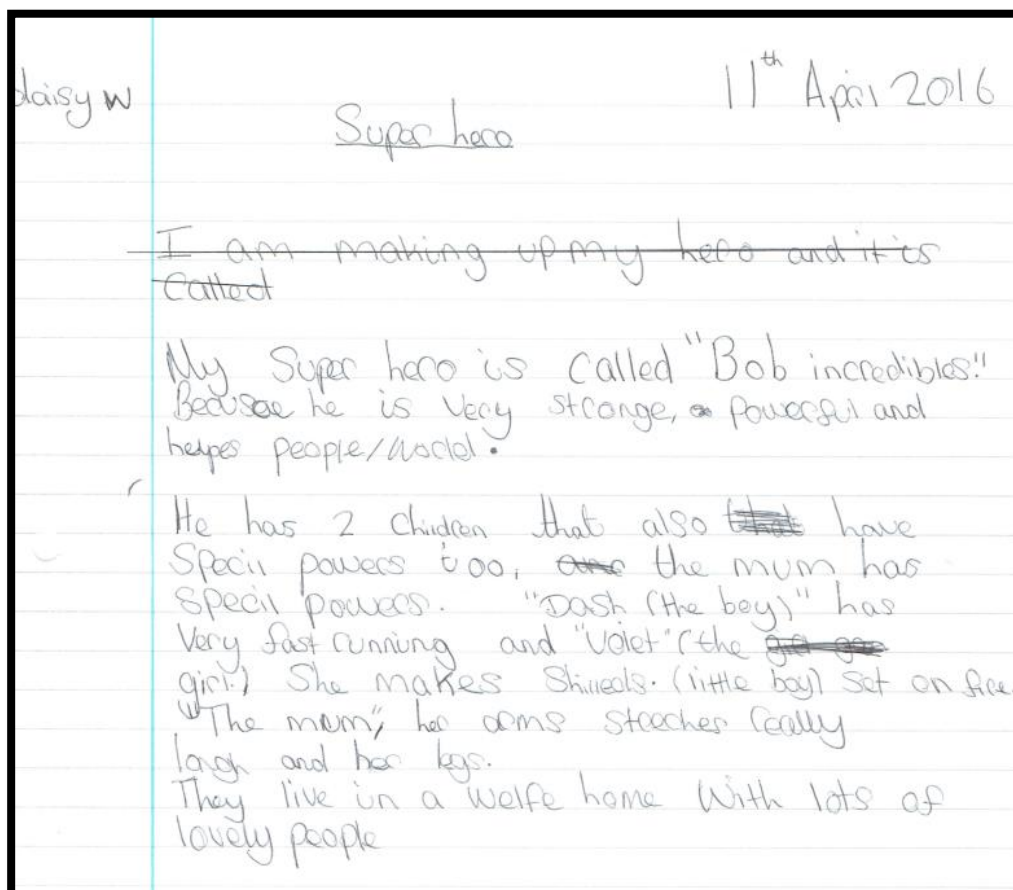 daisy w
11th April 2016
Super hero
I am making up my hero and it is
called
My Super hero is called "Bob incredibles"
Becusae he is very strange, powerful and
helpes people/World.
He has 2 children that also that have
Specil powers too, the mum has
Specil powers. "Dash (the boy)" has
Very fast running and "Volet" (the
girl.) She makes Shireols. (little boy) set on fire.
"The mum", her arms streaches really
longh and her legs.
They live in a welfe home With lots of
lovely people